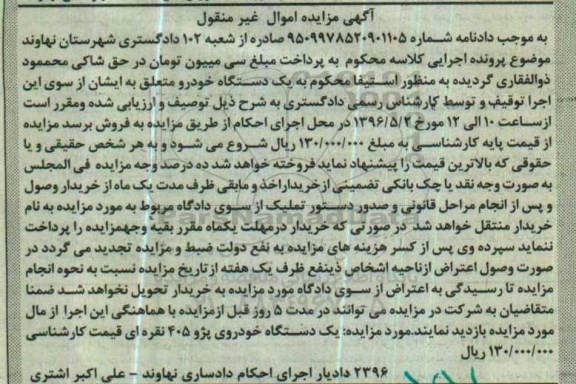 آگهی مزایده اموال غیر منقول
به موجب دادنامه شماره ۹۵۰۹۹۷۸۵۲۰۹۰۱۱۰۵ صادره از شعبه ۱۰۲ دادگستری شهرستان نهاوند
موضوع پرونده اجرایی کلاسه محکوم به پرداخت مبلغ سی میبیون تومان در حق شاکی محممود
ذوالفقاری گردیده به منظور استیفا محکوم به یک دستگاه خودرو متعلق به ایشان از سوی این
اجرا توقیف و توسط کارشناس رسمی دادگستری به شرح ذیل توصیف و ارزیابی شده ومقرر است
ازساعت ۱۰ الی ۱۲ مورخ ۱۳۹۶/۵/۲ در محل اجرای احکام از طریق مزایده به فروش برسد مزایده
از قیمت پایه کارشناسی به مبلغ ۱۳۰/۰۰۰/۰۰۰ ریال شروع می شود و به هر شخص حقیقی و یا
حقوقی که بالاترین قیمت را پیشنهاد نماید فروخته خواهد شد ده درصد وجه مزایده فی المجلس
به صورت وجه نقد یا چک بانکی تضمینی ازخریداراخذ و مابقی ظرف مدت یک ماه از خریدار وصول
و پس از انجام مراحل قانونی و صدور دستور تملیک از سوی دادگاه مربوط به مورد مزایده به نام
خریدار منتقل خواهد شد در صورتی که خریدار درمهلت یکماه مقرر بقیه وجهمزایده را پرداخت
ننماید سپرده وی پس از کسر هزینه های مزایده به نفع دولت ضبط و مزایده تجدید می گردد در
صورت وصول اعتراض ازناحیه اشخاص ذینفع ظرف یک هفته ازتاریخ مزایده نسبت به نحوه انجام
مزایده تا رسیدگی به اعتراض از سوی دادگاه مورد مزایده به خریدار تحویل نخواهد شد ضمنا
متقاضیان به شرکت در مزایده می توانند در مدت ۵ روز قبل ازمزایده با هماهنگی این اجرا از مال
مورد مزایده بازدید نمایند.مورد مزایده: یک دستگاه خودروی پژو ۴۰۵ نقره ای قیمت کارشناسی
۱۳۰/۰۰۰/۰۰۰ ریال
۲۳۹۶ دادیار اجرای احکام دادسرای نهاوند - علی اکبر اشتری